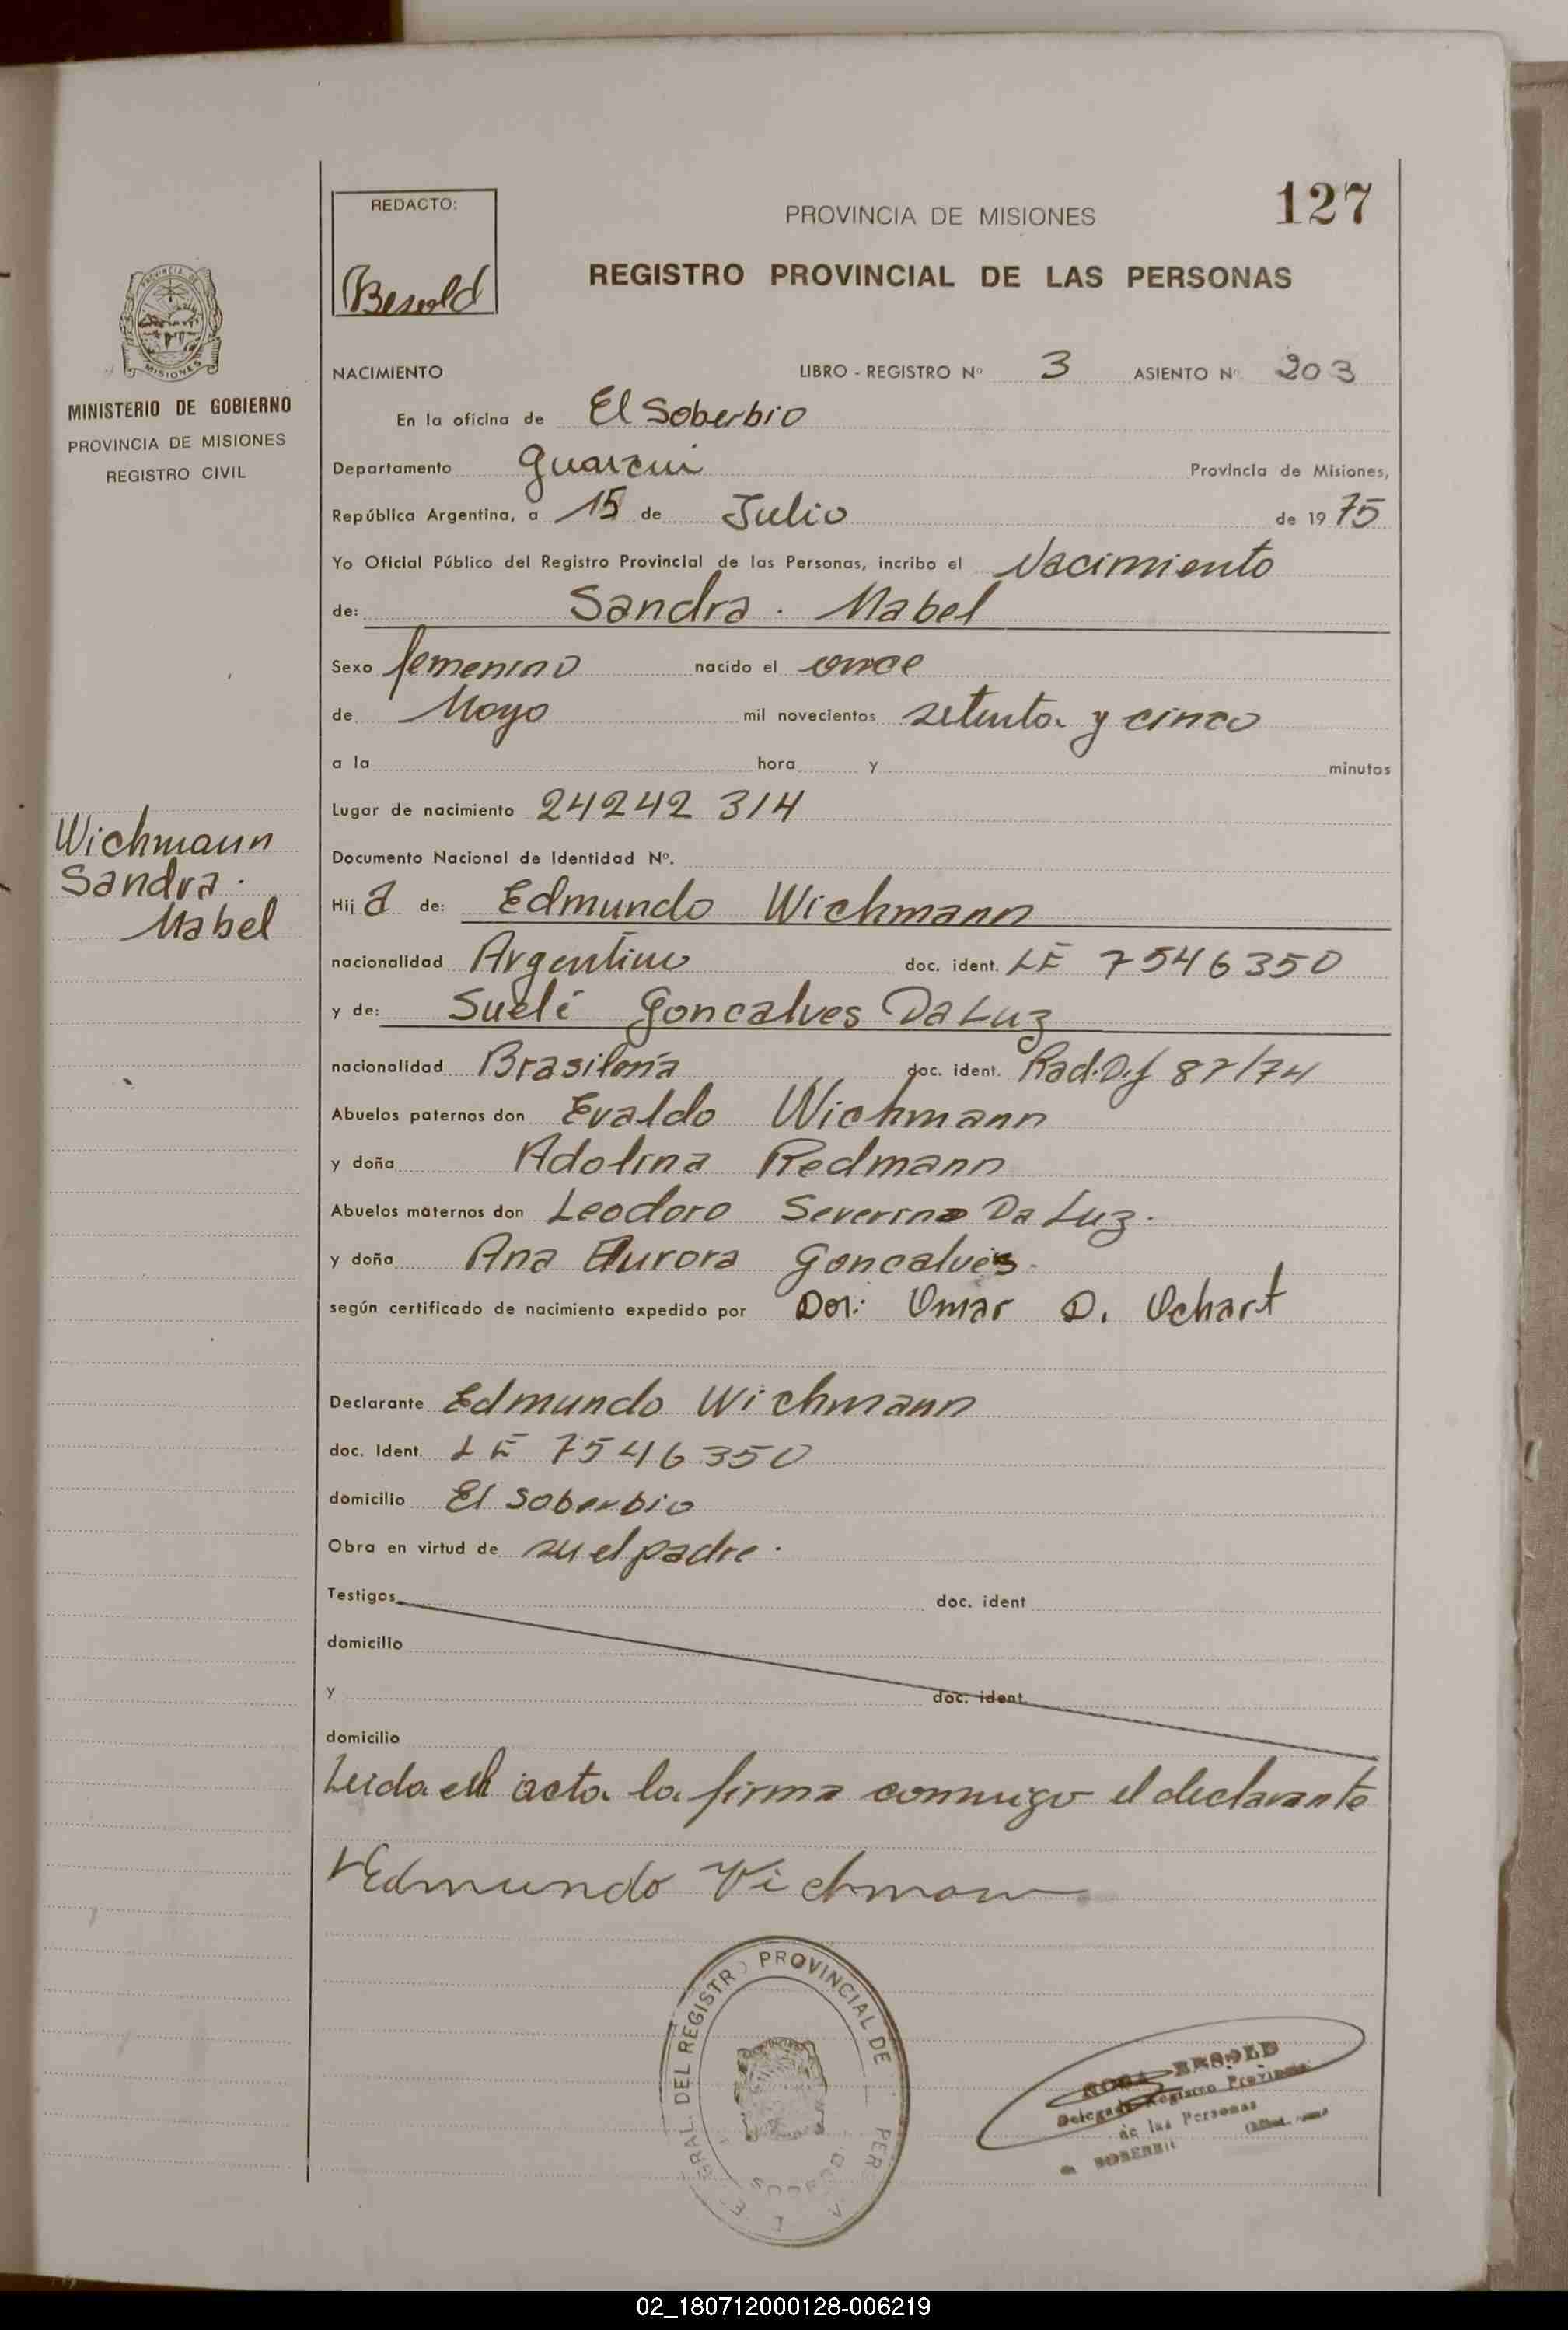 REDACTO:
Besold
PROVINCIA DE MISIONES
127
REGISTRO PROVINCIAL DE LAS PERSONAS
MISIONES
MINISTERIO DE GOBIERNO
PROVINCIA DE MISIONES
REGISTRO CIVIL
NACIMIENTO LIBRO - REGISTRO Nº 3 ASIENTO Nº 203
En la oficina de El Soberbio
Departamento Guarani Provincia de Misiones,
República Argentina, a 15 de Julio de 1975
Yo Oficial Público del Registro Provincial de las Personas, incribo el Nacimiento
de: Sandra. Mabel
Sexo femenino nacido el once
de Mayo mil novecientos setenta y cinco
a la hora y minutos
Lugar de nacimiento 24242 314
Wichmann
Sandra.
Mabel
Documento Nacional de Identidad Nº.
Hija de: Edmundo Wichmann
nacionalidad Argentino doc. ident. LE 7546350
y de: Sueli Goncalves Da Luz
nacionalidad Brasileña doc. ident. Rad.
Abuelos paternos don Evaldo Wichmann
y doña Adolina Redmann
Abuelos maternos don Leodoro Severino Da Luz.
y doña Ana Aurora Goncalves.
según certificado de nacimiento expedido por Dor: Omar D. Ochart
Declarante Edmundo Wichmann
doc. Ident. LE 7546350
domicilio El Soberbio
Obra en virtud de su el padre.
Testigos doc. ident
domicilio
y doc. ident
domicilio
Leida el acta la firma conmigo el declarante
Edmundo Vichmann
GRAL. DEL REGISTRO PROVINCIAL DE PER
ROSA BESOLD
Delegada Registro Provincial
de las Personas
SOBERBIO
02_180712000128-006219